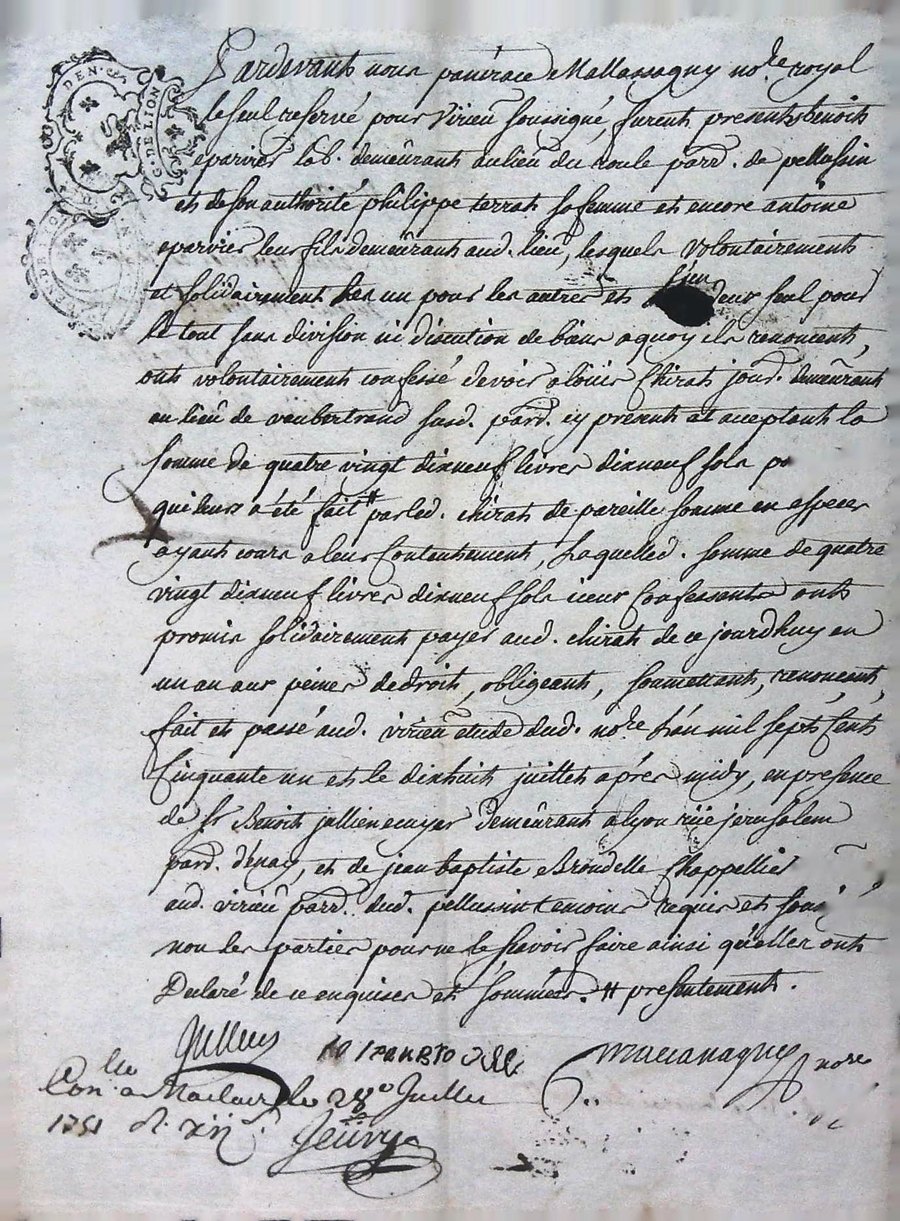 DEN.ers
G. DE LION
Pardevant nous pancrace Mallassagny no.re royal
le seul reservé pour Virieu soussigné, furent presents benoit
eparvier lab. demeûrant au lieu du roule parr. de pellussin
et de son authorité philippe terrat sa femme et encore antoine
eparvier leur fils demeûrant aud. lieu, lesquels volontairement
et solidairement les un pour les autres et l'un deux seul pour
le tout sans division ni discution de biens a quoy ils renoncent,
ont volontairement confessé devoir a loüis Chirat jour. demeûrant
au lieu de vaubertrand susd. parr. icy present et acceptant la
somme de quatre vingt dixneuf livres dixneuf sols
qui leurs a été fait # par led. chirat de pareille somme en especes
ayant cours a leur contentement, Laquelled. somme de quatre
vingt dixneuf livres dixneuf sols iceux confessants ont
promis solidairement payer aud. chirat de ce jourdhuy en
un an aux peines de droit, obligeant, soumettant, renonceant,
fait et passé aud. virieu étude dud. no.re L'an mil sept cent
Cinquante un et le dixhuit juillet aprés midy, en presence
de Sr Benoit jullien ecuyer demeûrant a lyon rüe jerusalem
parr. d'enay, et de jean baptiste Brondelle Chappellier
aud. virieu parr. dud. pellussin temoins requis et
non les parties pour ne le sçavoir faire ainsi qu'elles ont
Declaré de ce enquises et sommées. # presentement.
Jullien
no.re
Con.lle a Maclas le 28e Juillet
1751 d. xii s.